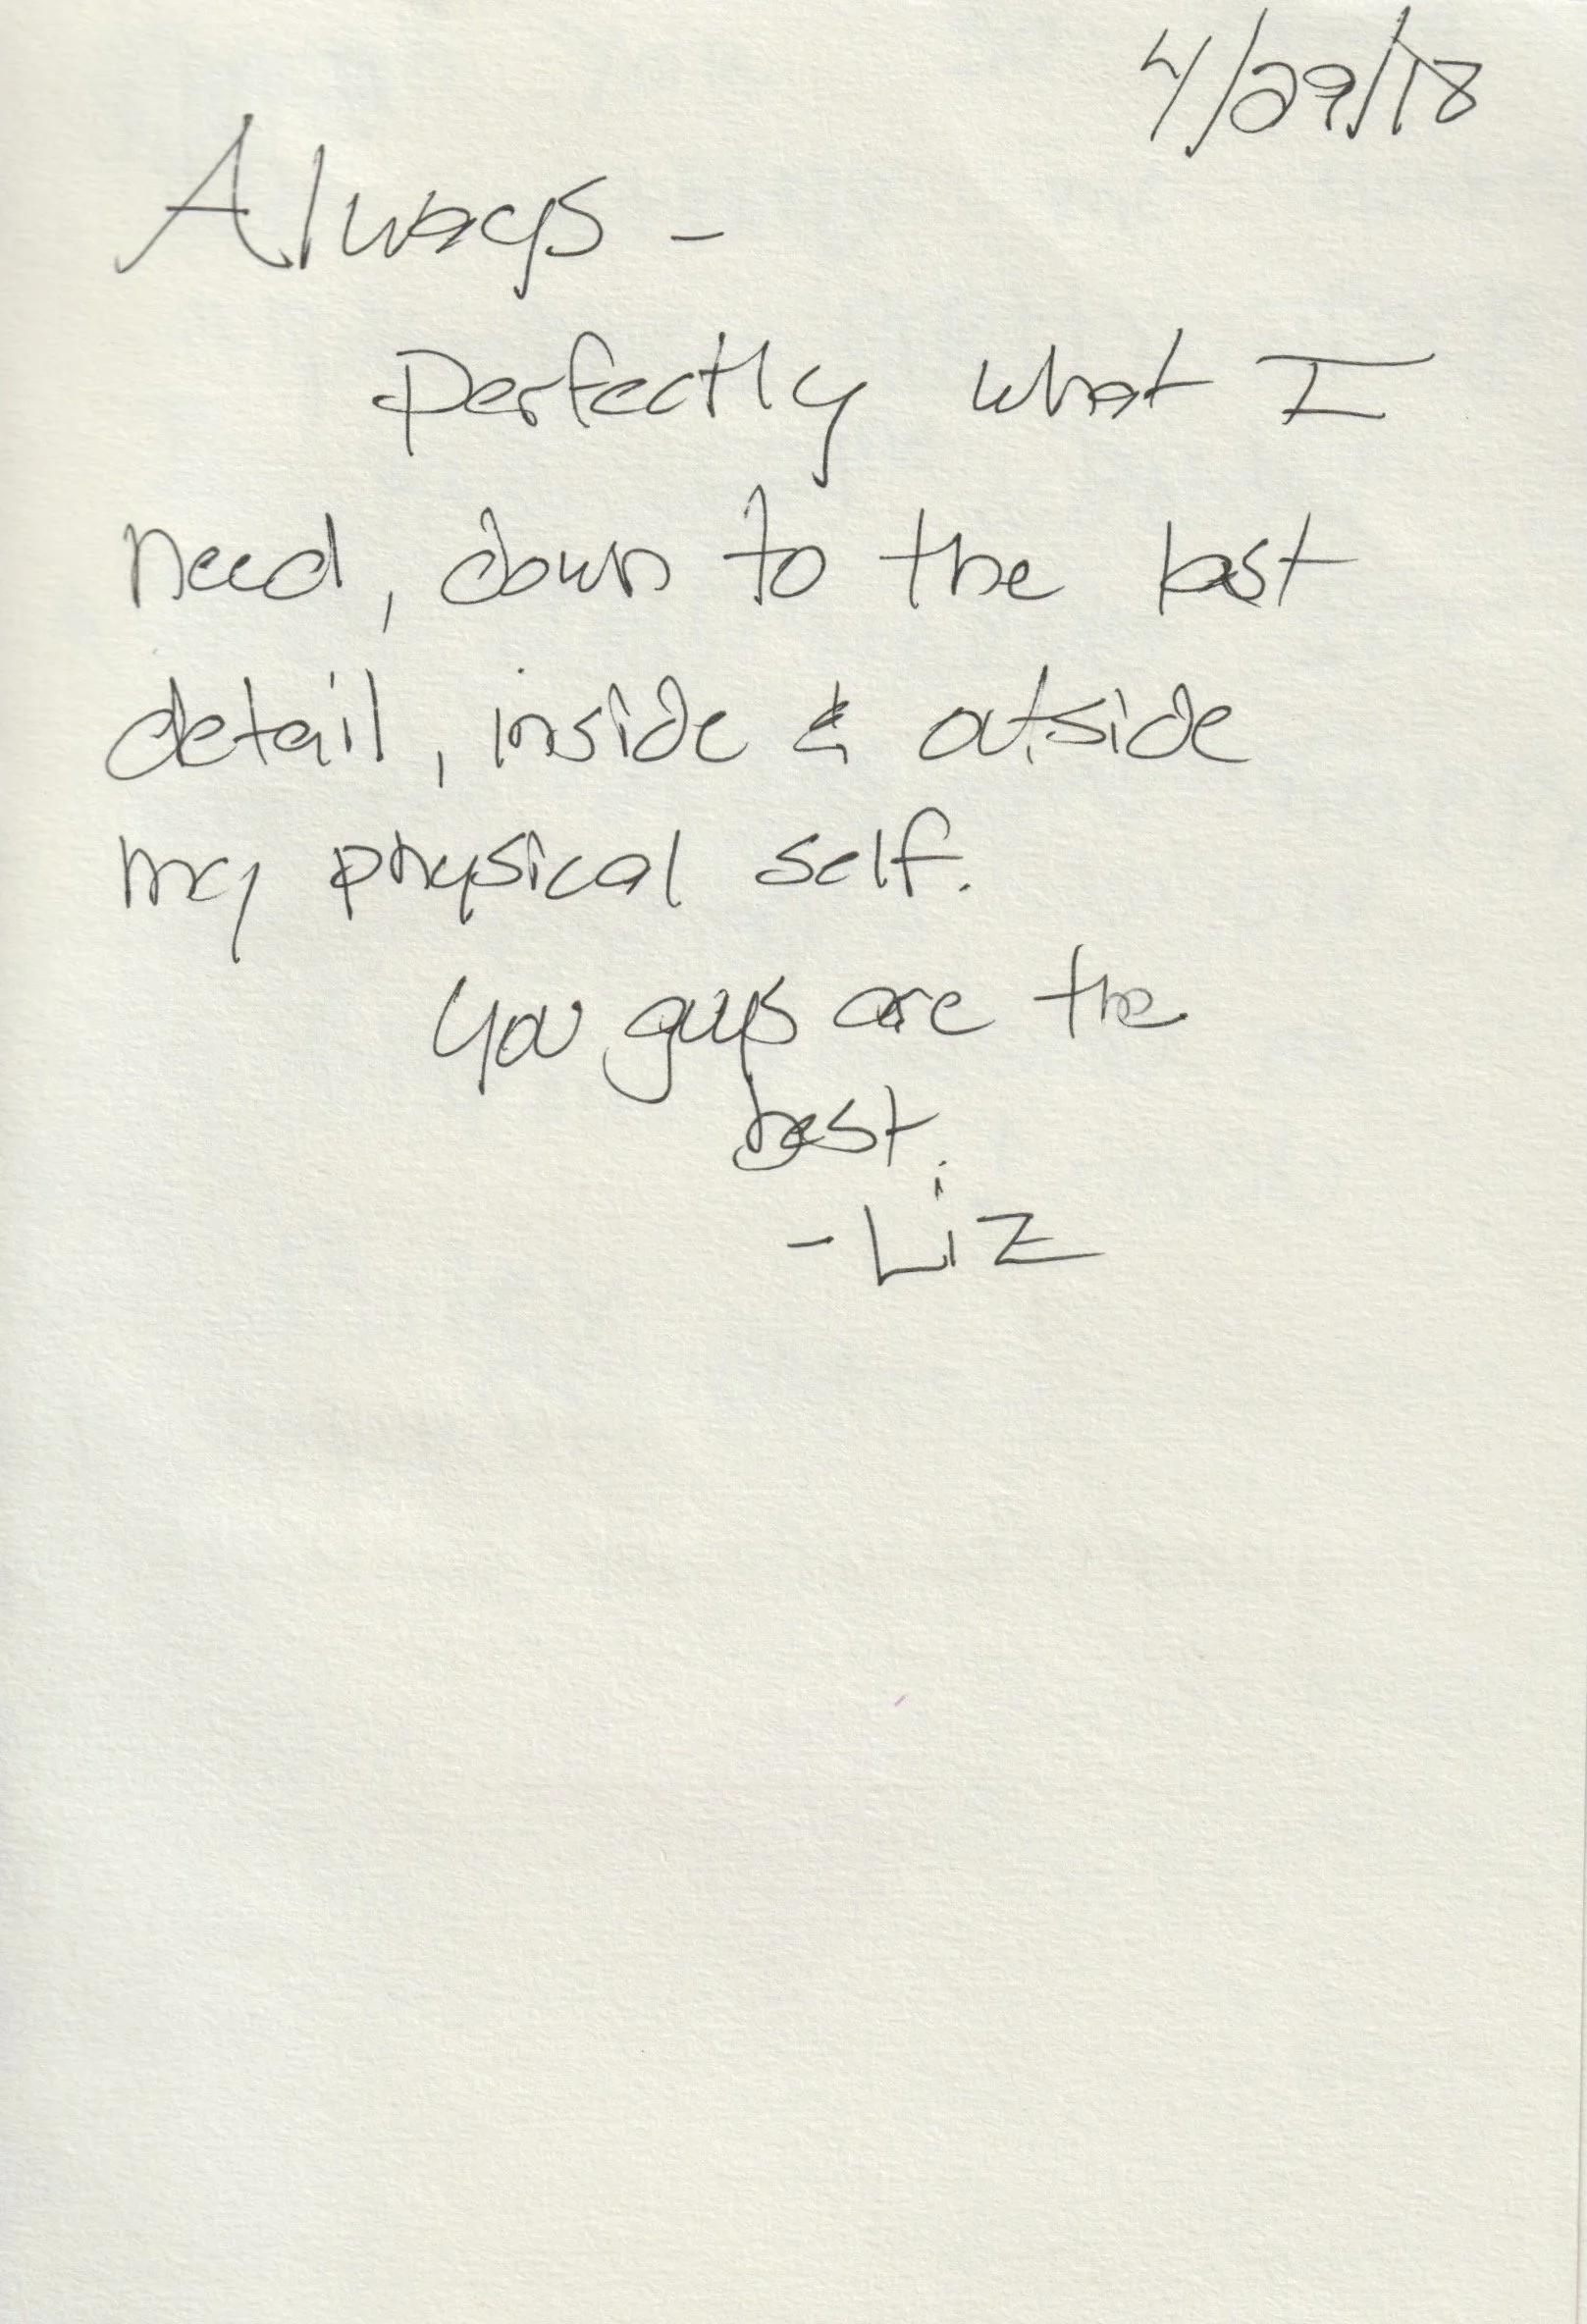 4/29/18
Always -
Perfectly what I
need, down to the last
detail, inside & outside
my physical self.
You guys are the
best.
- Liz